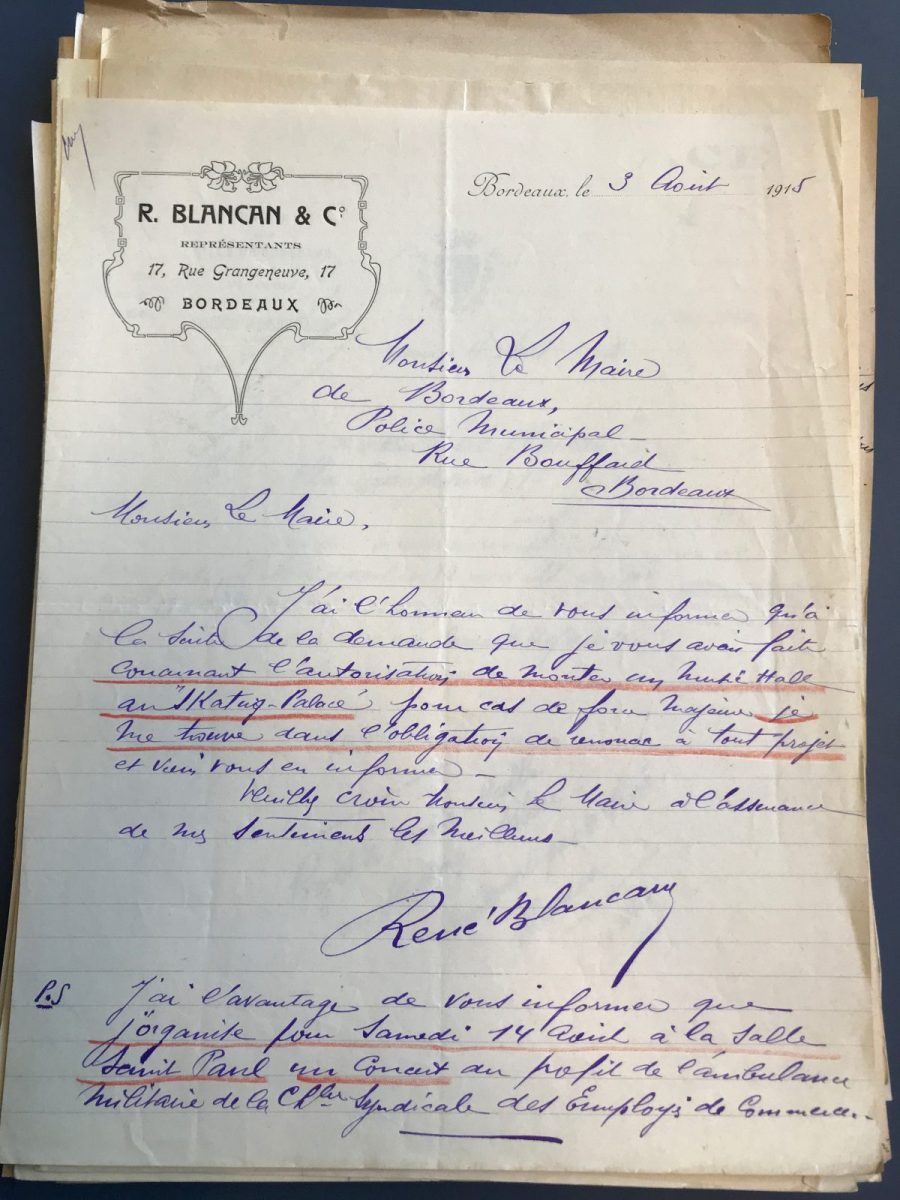 R. BLANCAN & Cº
REPRÉSENTANTS
17, Rue Grangeneuve, 17
BORDEAUX
Bordeaux, le 3 Août 1915
Monsieur Le Maire
de Bordeaux,
Police Municipal
Rue Bouffard
Bordeaux
Monsieur Le Maire,
J'ai l'honneur de vous informer qu'à
la suite de la demande que je vous avais faite
concernant l'autorisation de monter un Music Hall
au "Skating-Palace" pour cas de force majeure je
me trouve dans l'obligation de renoncer à tout projet
et viens vous en informer –
Veuillez croire Monsieur le Maire à l'assurance
de mes sentiments les meilleurs –
René Blancan
P.S J'ai l'avantage de vous informer que
j'organise pour Samedi 14 Août à la Salle
Saint Paul un Concert au profit de l'ambulance
Militaire de la Chbre Syndicale des Employés de Commerce.